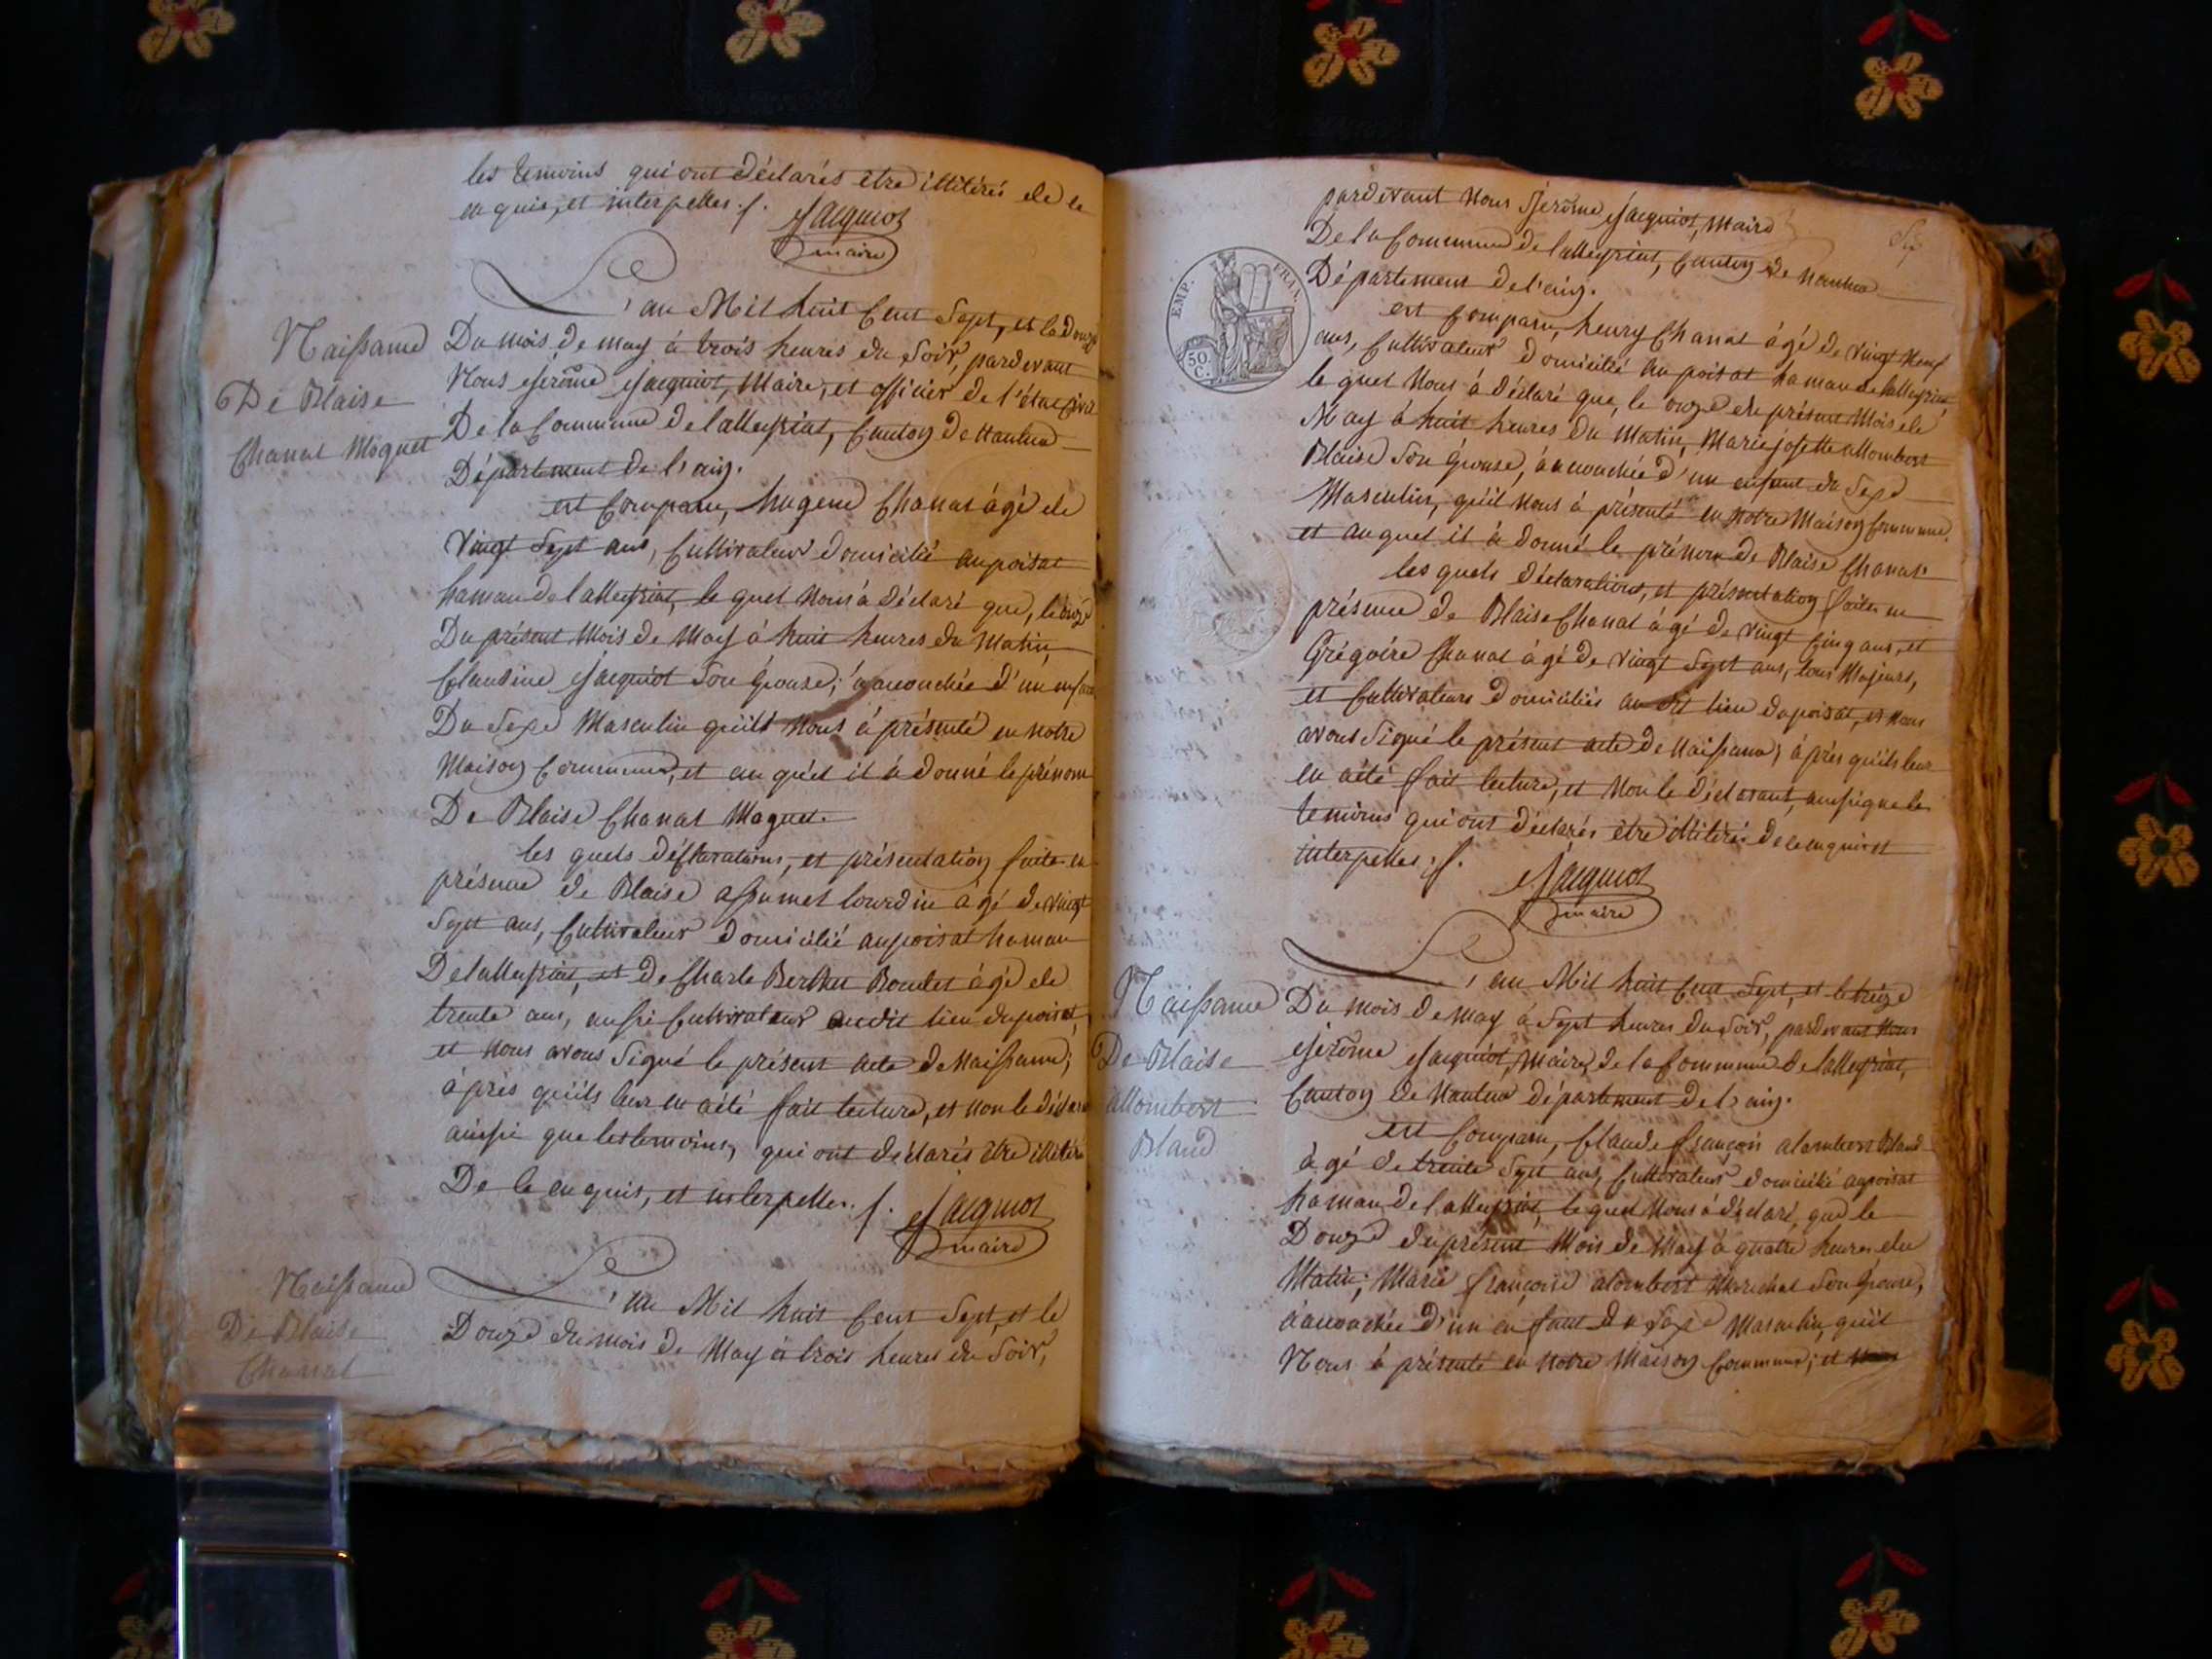 les temoins qui ont déclarés être illitérés de ce
enquis, et interpellés ./.
Jacquiot
maire
L'an Mil huit Cent Sept, et le douze
Du mois de may à trois heures du Soir, pardevant
Nous Jerôme Jacquiot, Maire, et officier de l'état Civil
De la Commune de lalleyriat, Canton de Nantua
Département de l'ain.
est Comparu, hugene Chanat âgé de
Vingt Sept ans, Cultivateur domicilié au poisat
hamau de lalleyriat, le quel Nous à déclaré que, le onze
Du présent Mois de May à huit heures du Matin,
Claudine Jacquiot Son épouse; à accouchée d'un enfant
Du Sexe Masculin qu'il Nous à présenté en notre
Maison Commune, et au quel il à donné le prénom
De Blaise Chanat Moquet.
les quels déclarations, et présentation faite en
présence de Blaise assumet lourdin âgé de vingt
Sept ans, Cultivateur domicilié au poisat hamau
De lalleyriat, et de Charle Berthet Boulet âgé de
trente ans, aussi Cultivateur audit lieu du poisat,
et Nous avons Signé le présent acte de Naissance;
après qu'ils leur en a été fait lecture, et non le déclarant
ainsi que les temoins, qui ont déclarés être illitérés
De ce enquis, et interpellés ./.
Jacquiot
maire
L'an Mil huit Cent Sept, et le
Douze du mois de May à trois heures du Soir,
Naissance
De Blaise
Chanat Moquet
Naissance
De Blaise
Chanat
pardevant Nous Jerôme Jacquiot, Maire
De la Commune de lalleyriat, Canton de Nantua
Département de l'ain.
est Comparu, henry Chanat âgé de vingt Neuf
ans, Cultivateur domicilié au poisat hamau de lalleyriat
le quel Nous à déclaré que, le onze du présent Mois de
May à huit heures du Matin, Marie josette allombert
Blaise Son épouse, à accouchée d'un enfant du Sexe
Masculin, qu'il Nous à présenté en Notre Maison Commune,
et au quel il à donné le prénom de Blaise Chanat
les quels déclarations, et présentation faites en
présence de Blaise Chanat âgé de vingt Cinq ans, et
Grégoire Chanat âgé de vingt Sept ans, tous Majeurs,
et Cultivateurs domiciliés au dit lieu du poisat, et Nous
avons Signé le présent acte de Naissance; après qu'ils leur
en a été fait lecture, et Non le déclarant, ainsi que les
temoins qui ont déclarés être illitérés de ce enquis et
interpellés ./.
Jacquiot
maire
L'an Mil huit Cent Sept, et le treize
Du mois de May à Sept heures du Soir, pardevant Nous
Jerôme Jacquiot, Maire, de la Commune de lalleyriat,
Canton de Nantua département de l'ain.
est Comparu, Claude françois alombert Bland
âgé de trente Sept ans, Cultivateur domicilié au poisat
hamau de lalleyriat, le quel Nous à déclaré, que le
Douze du présent Mois de May à quatre heures du
Matin; Marie françoise alombert Marechal Son épouse,
à accouchée d'un enfant du Sexe Masculin, qu'il
Nous à présenté en Notre Maison Commune; et
Naissance
De Blaise
allombert
Bland
EMP. FRAN.
50.
C.